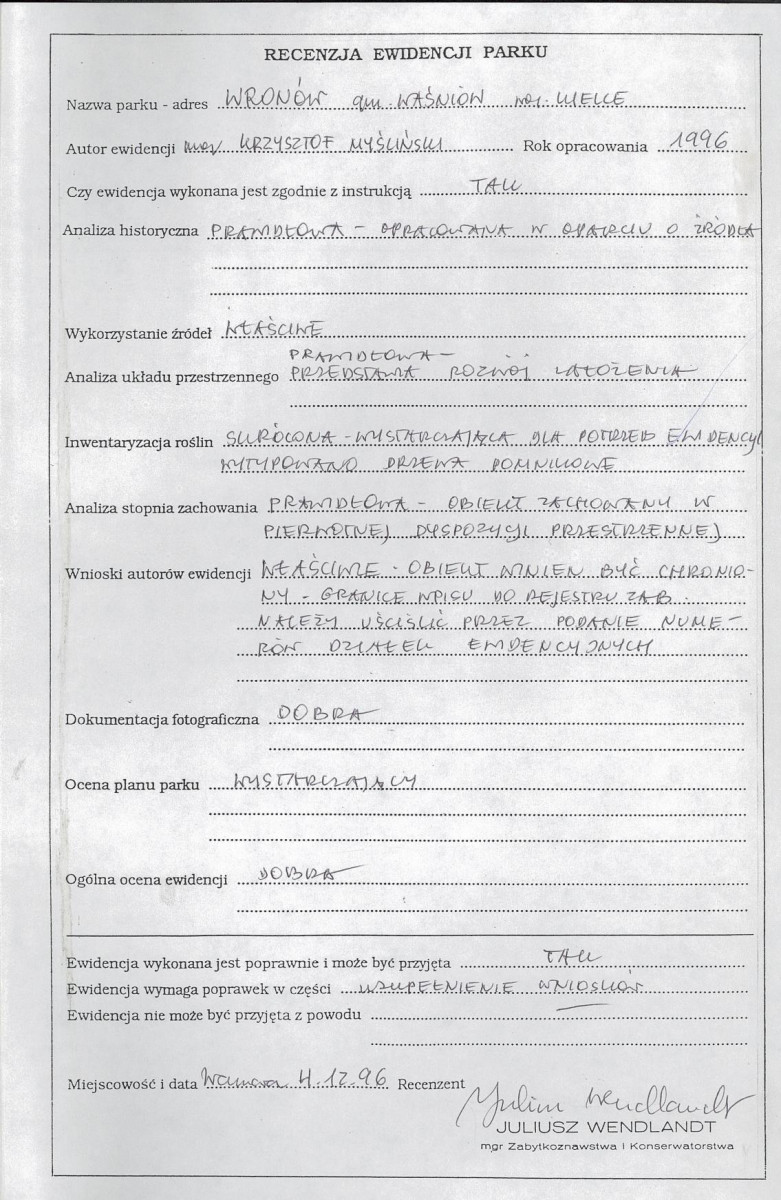 RECENZJA EWIDENCJI PARKU
Nazwa parku - adres WRONÓW gm. WAŚNIÓW woj. KIELCE
Autor ewidencji mgr KRZYSZTOF MYŚLIŃSKI Rok opracowania 1996
Czy ewidencja wykonana jest zgodnie z instrukcją TAK
Analiza historyczna PRAWIDŁOWA - OPRACOWANA W OPARCIU O ŹRÓDŁA
Wykorzystanie źródeł WŁAŚCIWE
PRAWIDŁOWA -
Analiza układu przestrzennego PRZEDSTAWIA ROZWÓJ ZAŁOŻENIA
Inwentaryzacja roślin SKRÓCONA - WYSTARCZAJĄCA DLA POTRZEB EWIDENCYJ
WYTYPOWANO DRZEWA POMNIKOWE
Analiza stopnia zachowania PRAWIDŁOWA - OBIEKT ZACHOWANY W
PIERWOTNEJ DYSPOZYCJI PRZESTRZENNEJ
Wnioski autorów ewidencji WŁAŚCIWE - OBIEKT WINIEN BYĆ CHRONIO-
NY - GRANICE WPISU DO REJESTRU ZAB.
NALEŻY UŚCIŚLIĆ PRZEZ PODANIE NUME-
RÓW DZIAŁEK EWIDENCYJNYCH
Dokumentacja fotograficzna DOBRA
Ocena planu parku WYSTARCZAJĄCY
Ogólna ocena ewidencji DOBRA
Ewidencja wykonana jest poprawnie i może być przyjęta TAK
Ewidencja wymaga poprawek w części UZUPEŁNIENIE WNIOSKÓW
Ewidencja nie może być przyjęta z powodu —
Miejscowość i data Warszawa 4.12.96 Recenzent
Juliusz Wendlandt
JULIUSZ WENDLANDT
mgr Zabytkoznawstwa i Konserwatorstwa